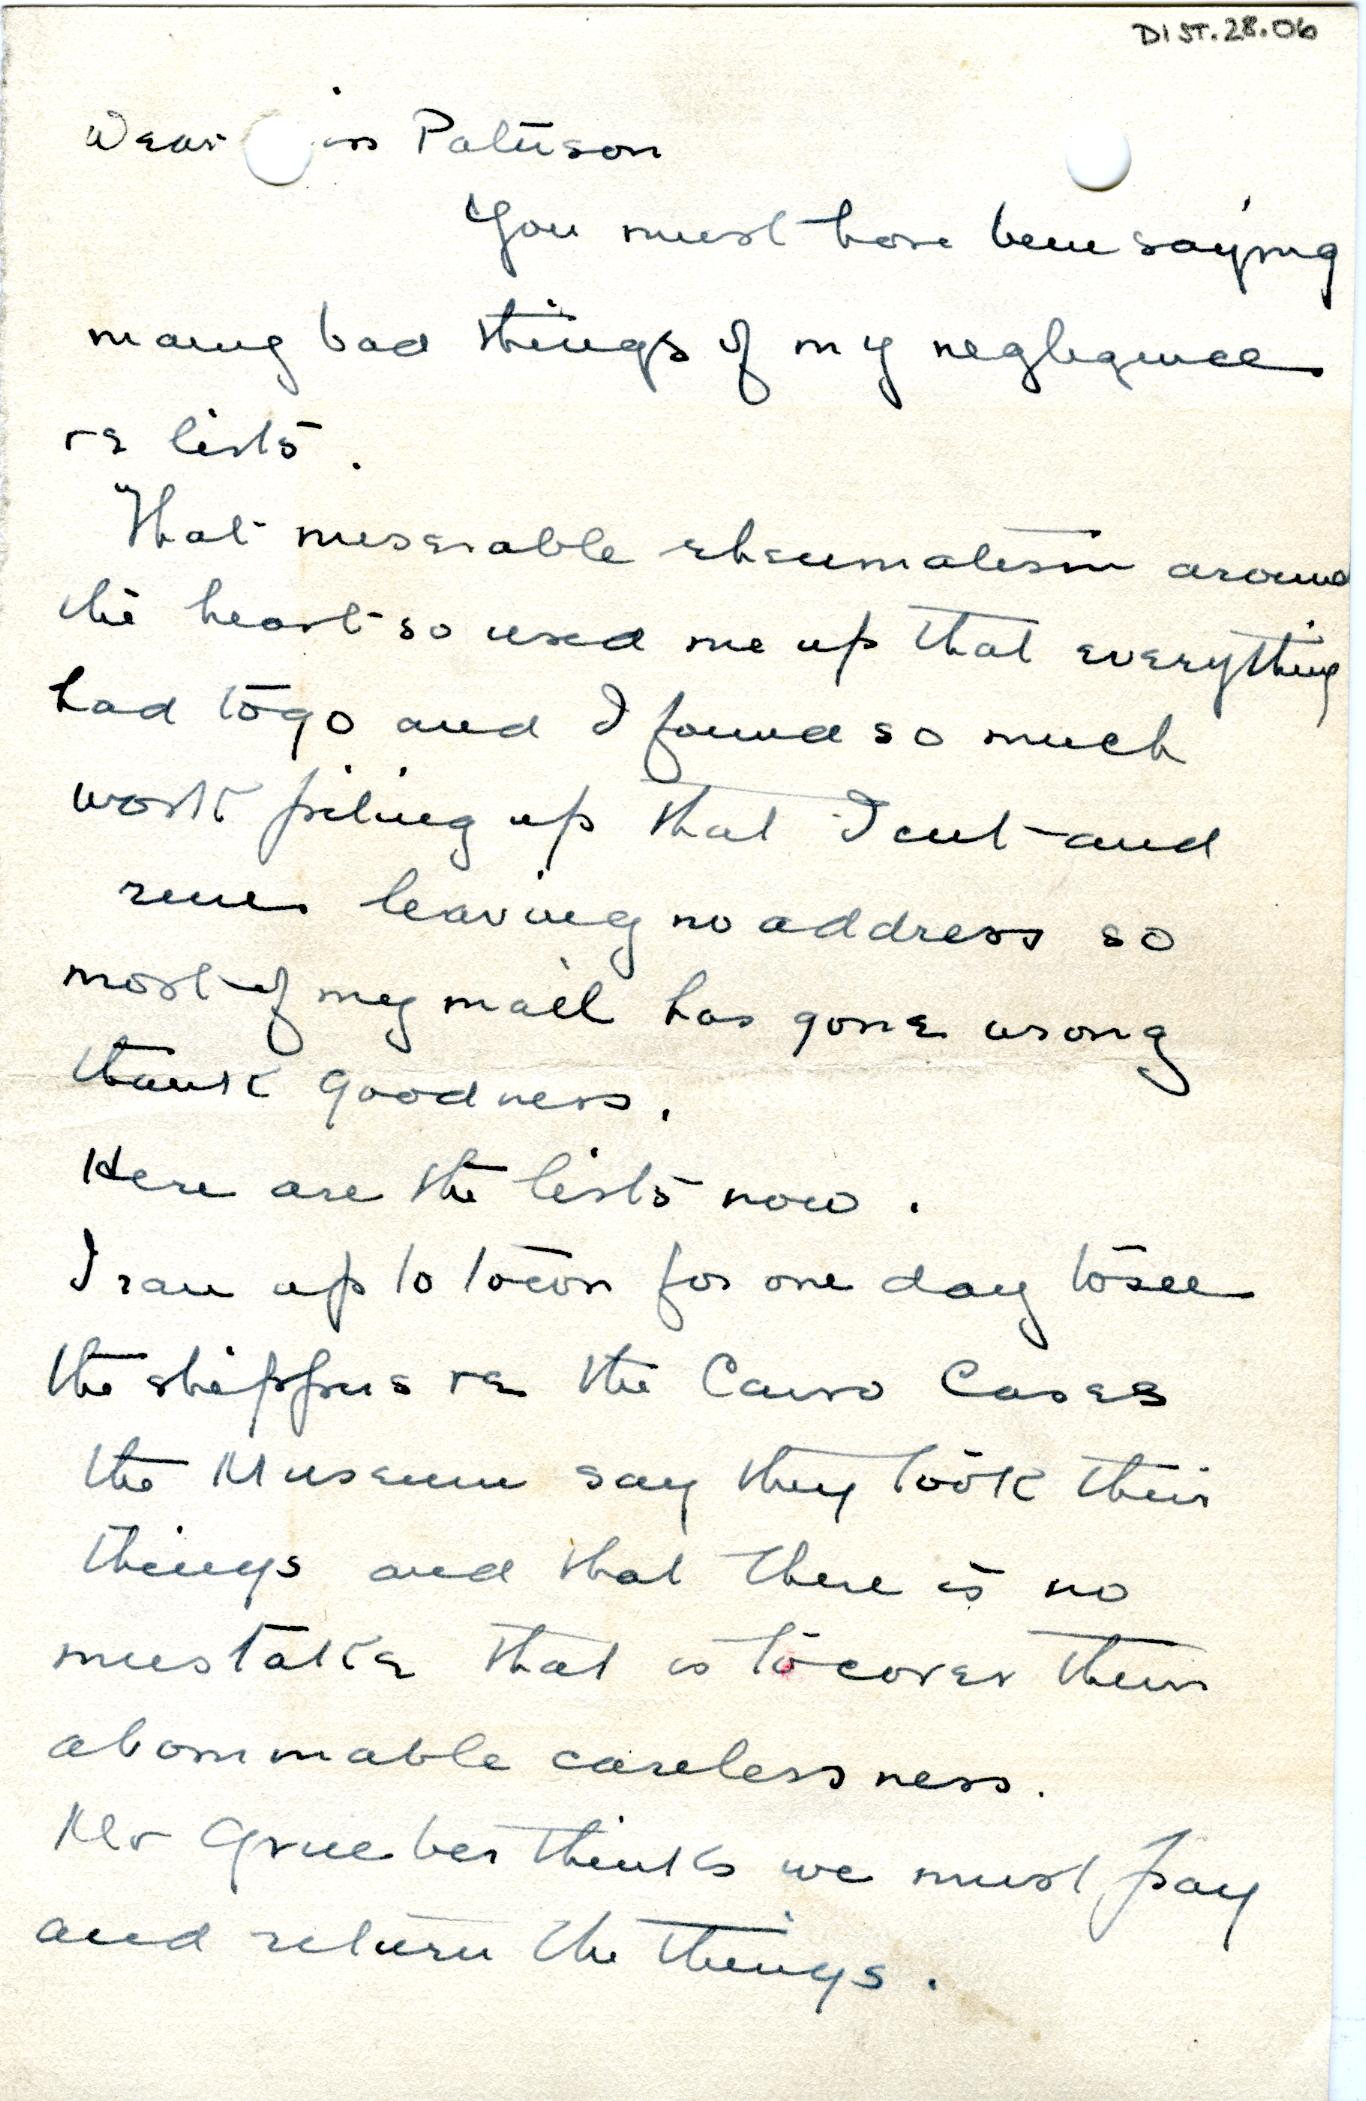 DIST.28.06
Dear iss Paterson
You must have been saying
many bad things of my negligence
re lists.
That miserable rheumatism around
the heart so used me up that everything
had to go and I found so much
work piling up that I cut and
run leaving no address so
most of my mail has gone wrong
thank goodness.
Here are the lists now.
I ran up to town for one day to see
the shippers re the Cairo Cases
the Museum say they took their
things and that there is no
mistake that is to cover their
abominable carelessness.
Mr Grueber thinks we must pay
and return the things.